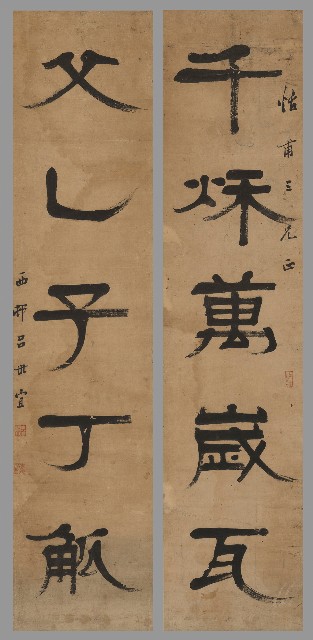 怡甫三兄正
千秌萬歲瓦
父乙子丁觚
西邨呂世宜